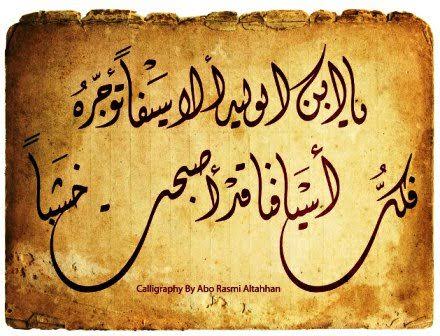 يا ابن الوليد ألا سيفاً تؤجّرهُ
فكلُّ أسيافنا قد أصبحت خشبا
Calligraphy By Abo Rasmi Altahhan